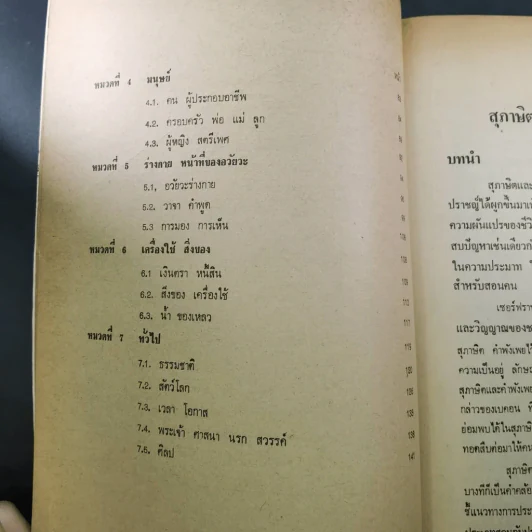 หมวดที่ 4 มนุษย์
4.1. คน ผู้ประกอบอาชีพ
4.2. ครอบครัว พ่อ แม่ ลูก
4.3. ผู้หญิง สตรีเพศ
หมวดที่ 5 ร่างกาย หน้าที่ของอวัยวะ
5.1, อวัยวะร่างกาย
5.2. วาจา คำพูด
5.3 การมอง การเห็น
หมวดที่ 6 เครื่องใช้ สิ่งของ
6.1 เงินตรา หนี้สิน
6.2. สิ่งของ เครื่องใช้
6.3. น้ำ ของเหลว 117
หมวดที่ 7 ทั่วไป
7.1. ธรรมชาติ
7.2. สัตว์โลก
7.3. เวลา โอกาส
7.4. พระเจ้า ศาสนา นรก สวรรค์
7.5. ศิลป
สุภาษิต
บทนำ
สุภาษิตและ
ปราชญ์ได้ผูกขึ้นมา
ความผันแปรของชีวิ
สบปัญหาเช่นเดียวกั
ในความประมาท
สำหรับสอนคน
เซอร์ฟรา
และวิญญาณของช
สุภาษิต คำพังเพยไว้
ความเป็นอยู่ ลักษ
สุภาษิตและคำพังเพ
กล่าวของเบคอน ที่
ย่อมพบได้ในสุภาษิ
ทอดสืบต่อมาให้คน
สุภาษิ
บางทีก็เป็นคำคล้อ
ชี้แนวทางการประ